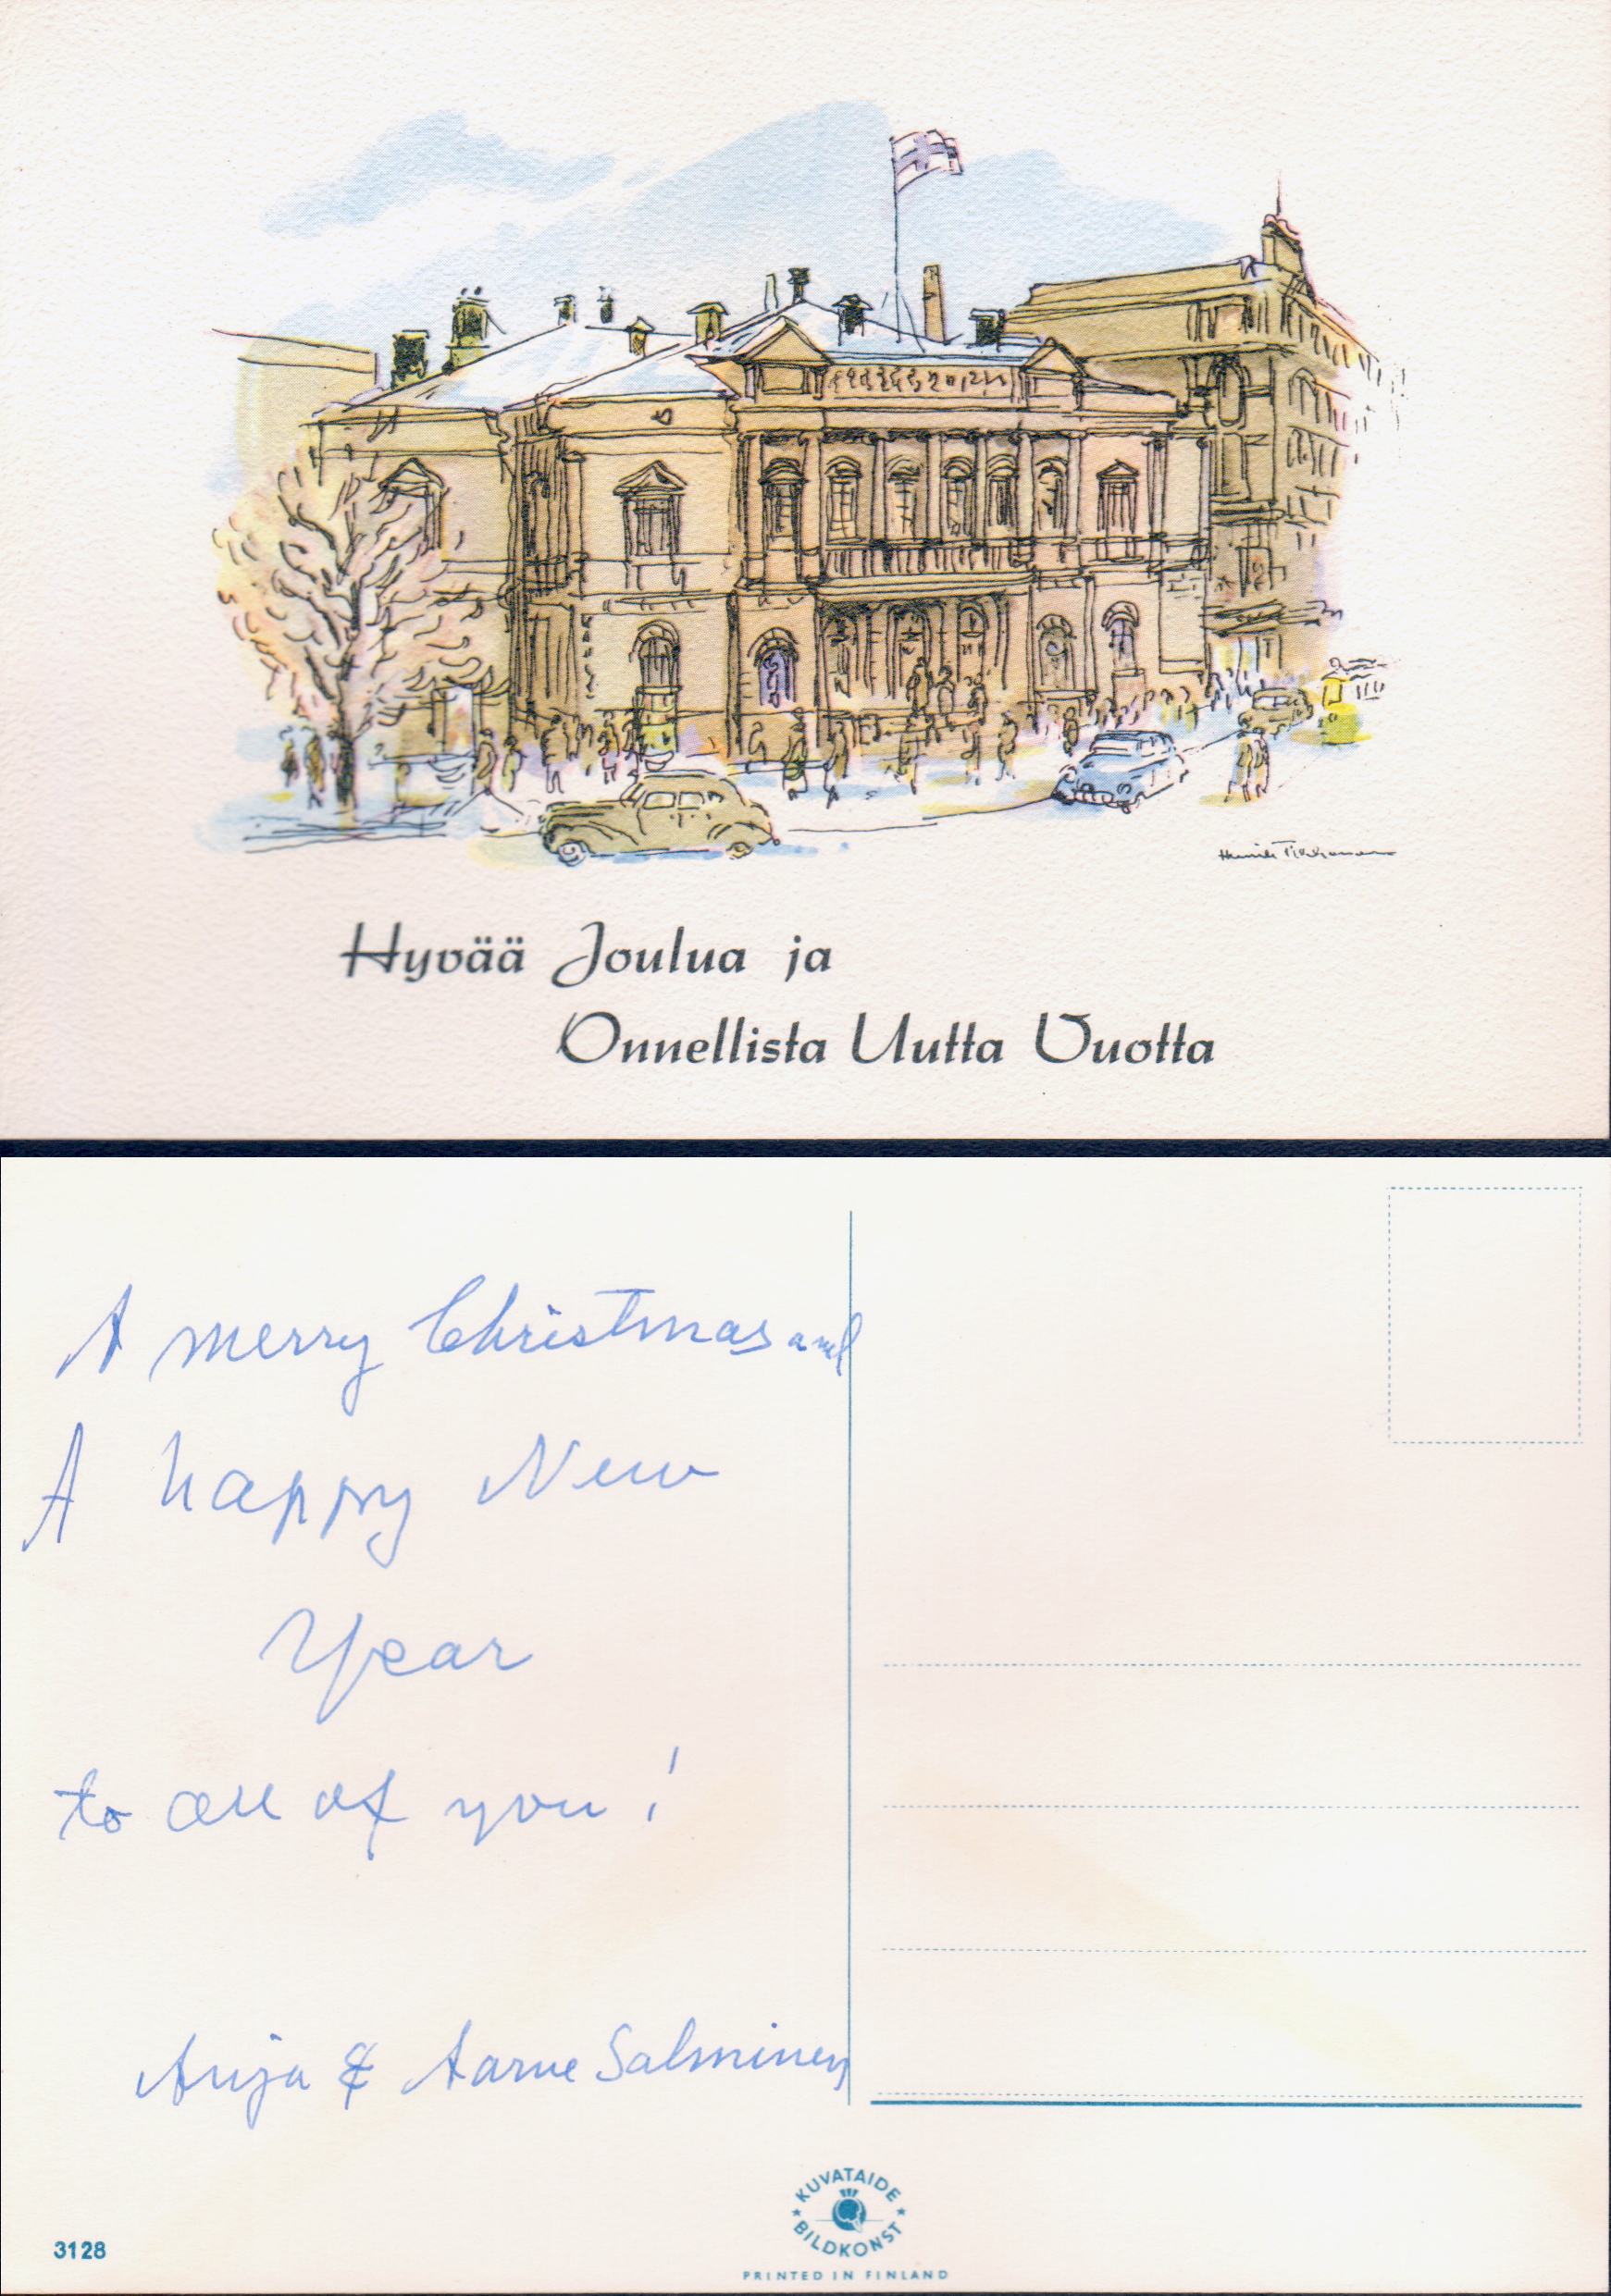 Henrik Tikkanen
Hyvää Joulua ja
Onnellista Uutta Vuotta
A merry Christmas and
A happy New
Year
to all of you!
Anja & Aarne Salminen
3128
KUVATAIDE
BILDKONST
PRINTED IN FINLAND